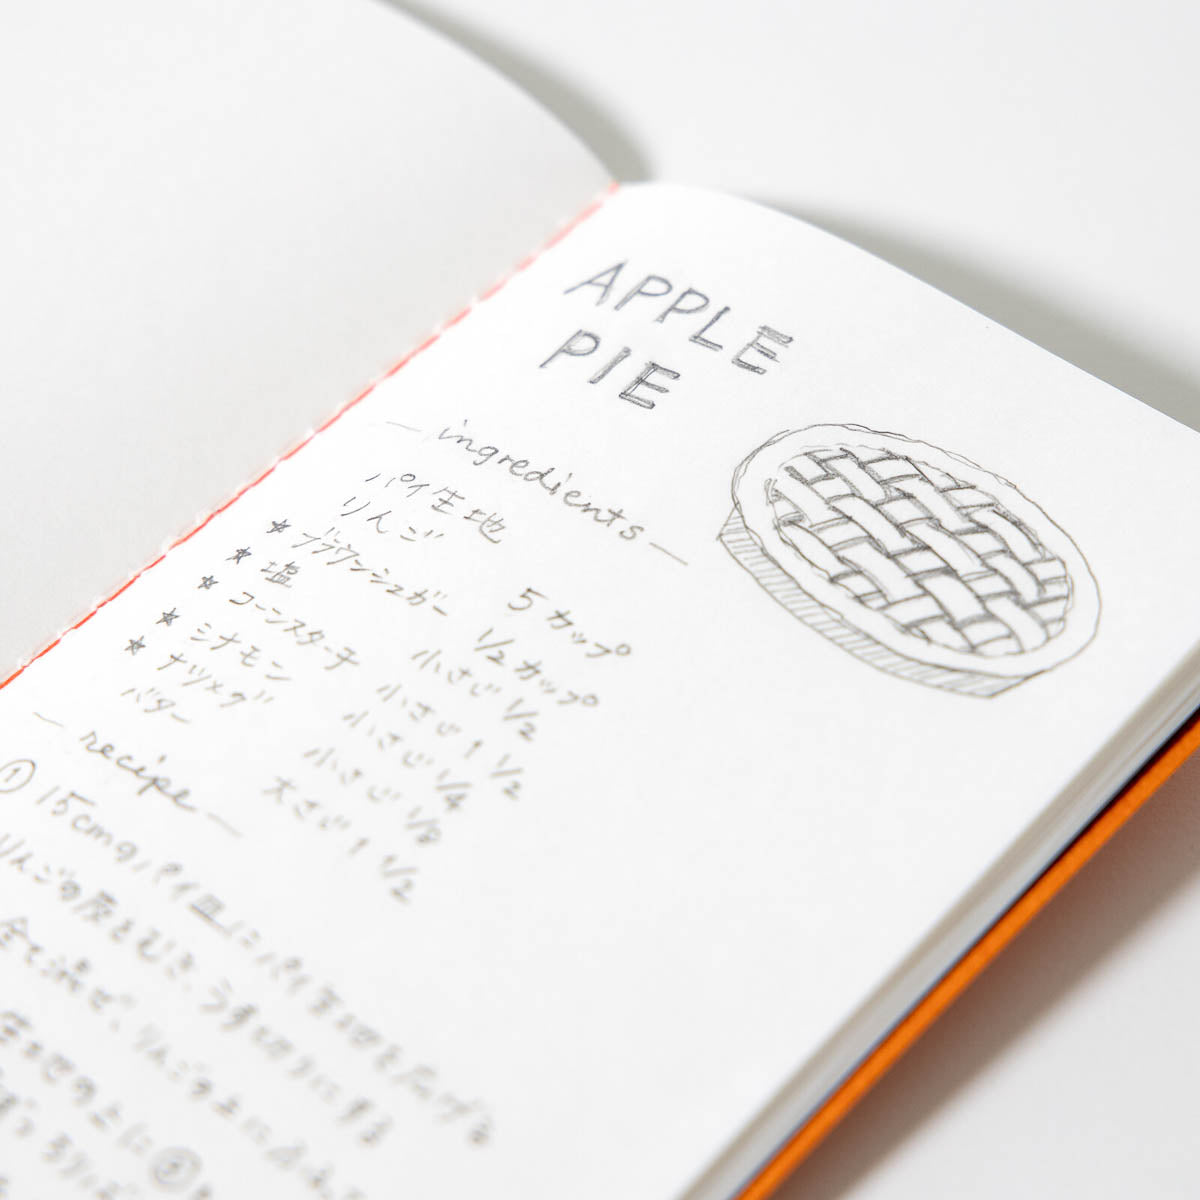 APPLE
PIE
— ingredients —
パイ生地
りんご 5カップ
★ブラウンシュガー 1/2カップ
★塩 小さじ 1/2
★コーンスターチ 小さじ 1 1/2
★シナモン 小さじ 1/4
★ナツメグ 小さじ 1/8
バター 大さじ 1 1/2
— recipe —
① 15cmのパイ皿にパイ生地を広げる
りんごの皮をむき、うす切りにする
全て混ぜ、りんごの上に
生地の上に②